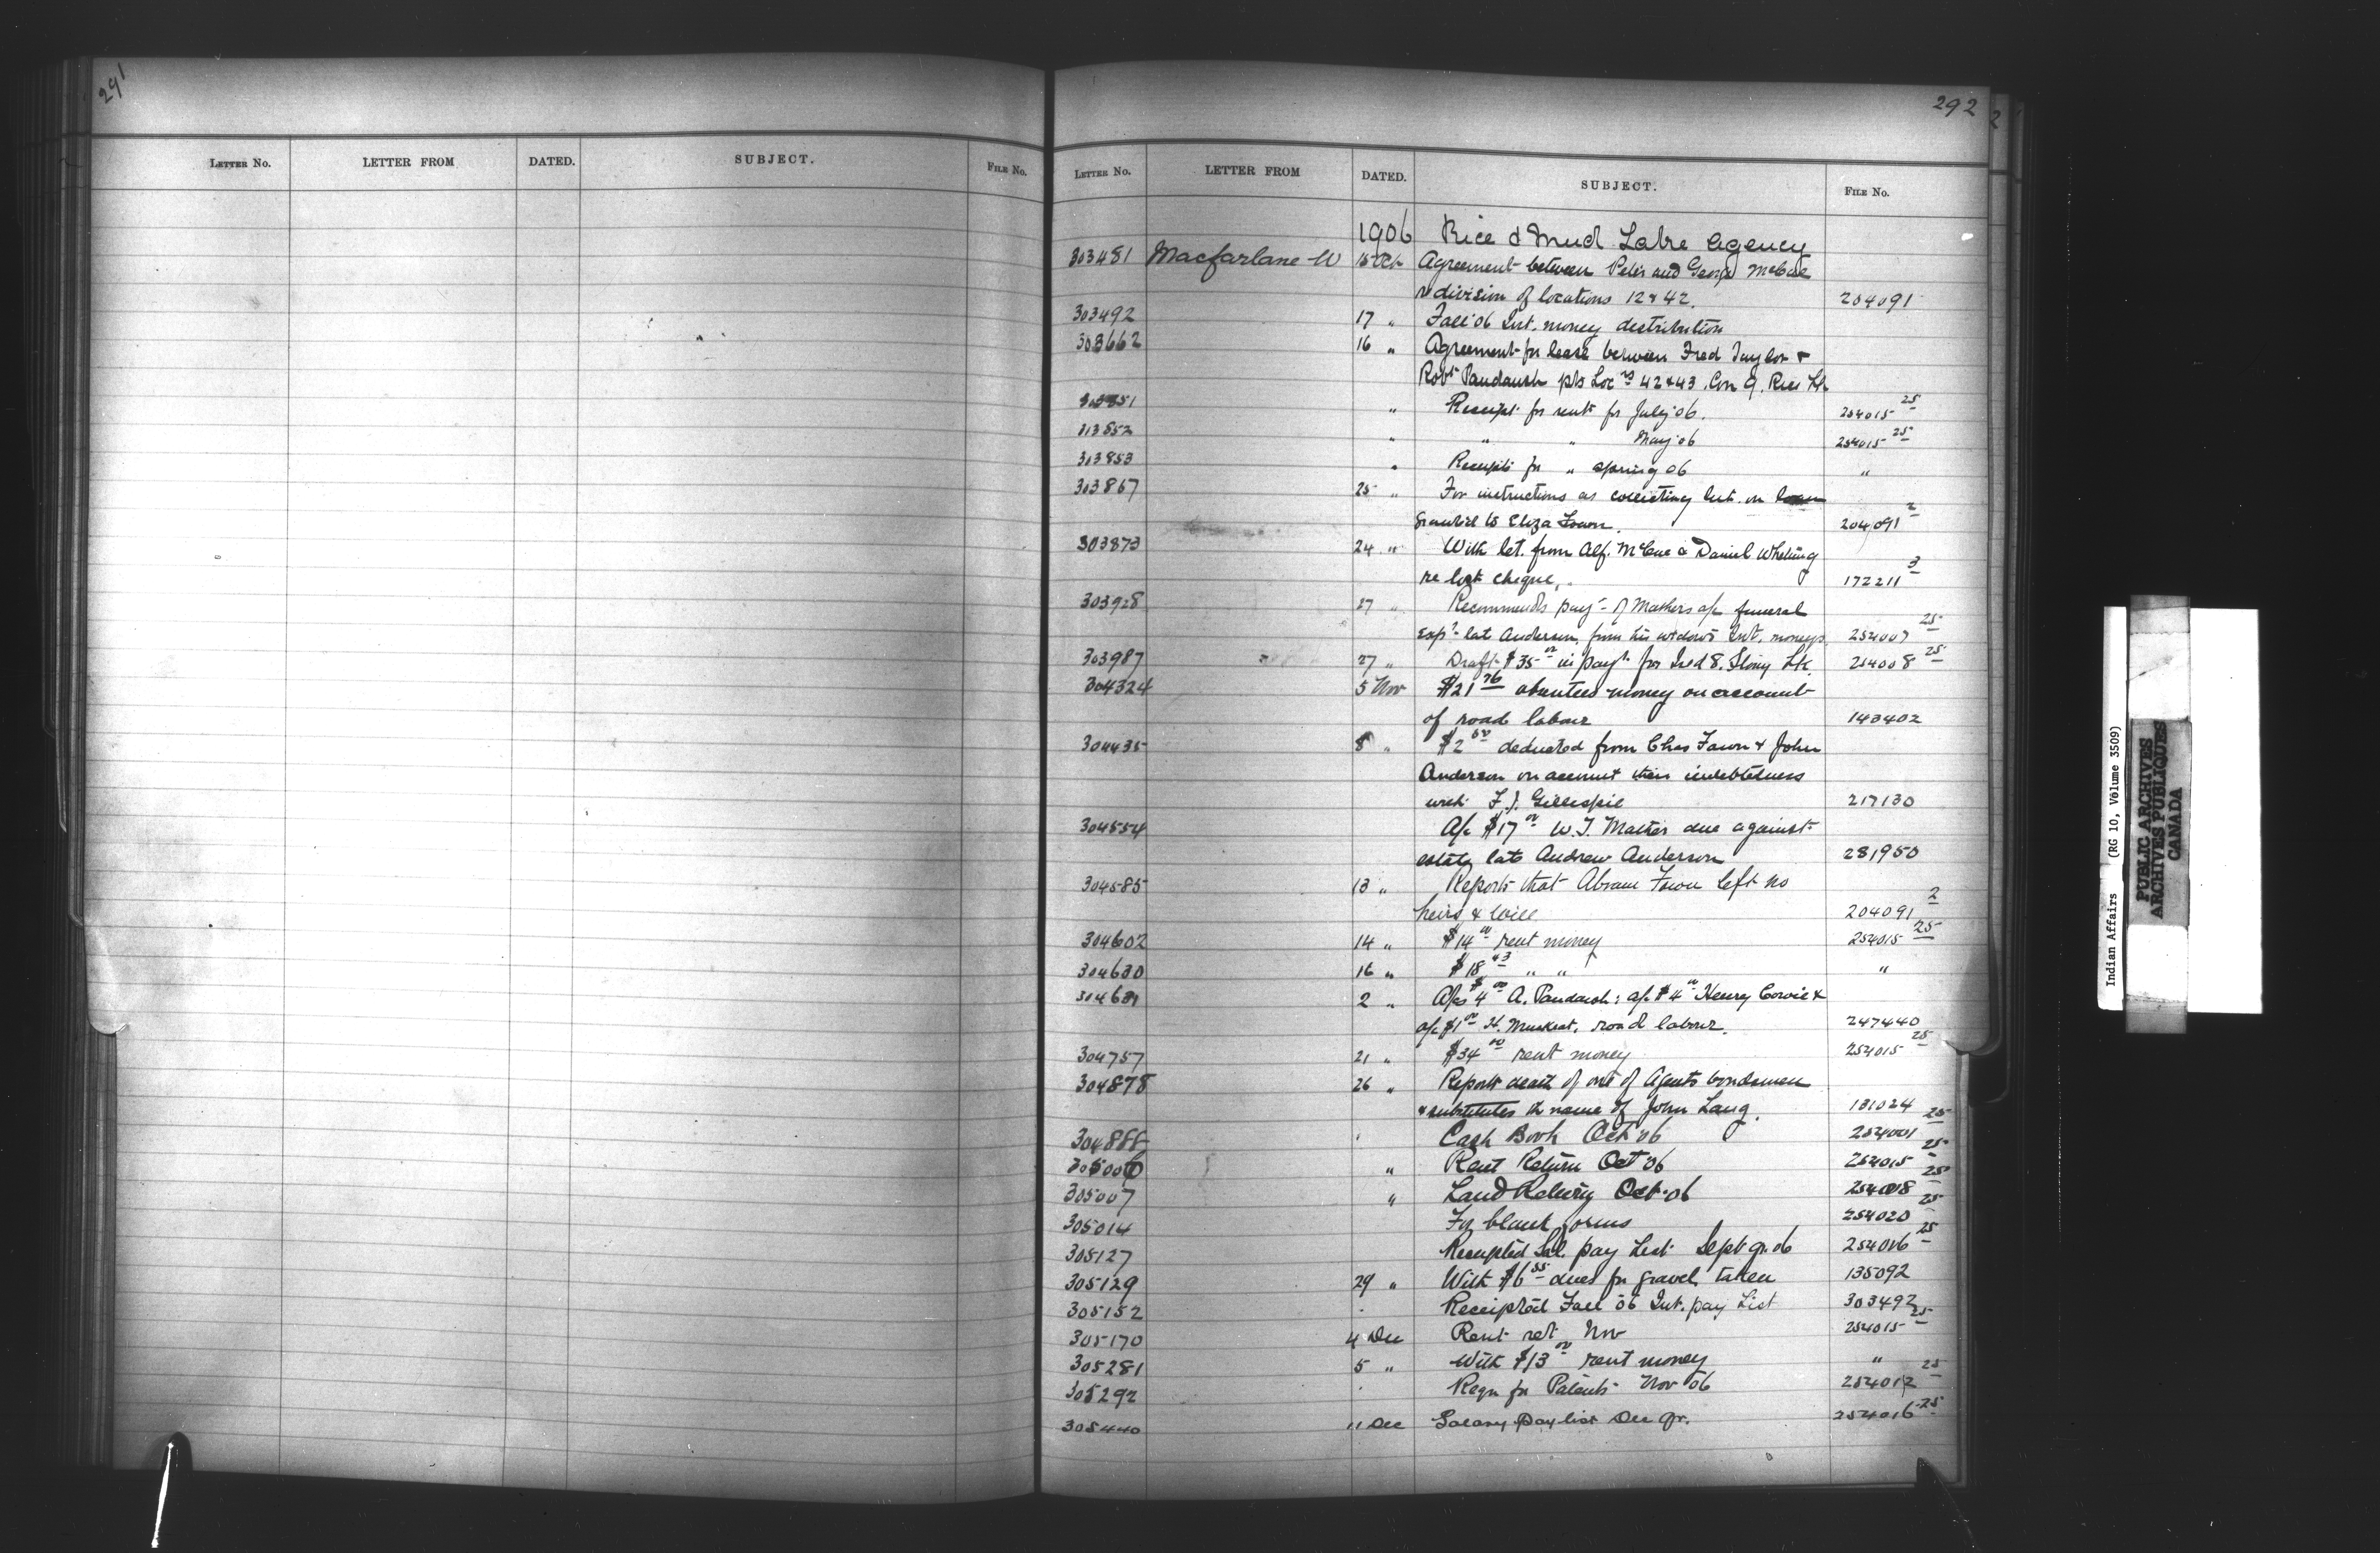 291
LETTER No. LETTER FROM DATED. SUBJECT. FILE No.
292
LETTER No. LETTER FROM DATED. SUBJECT. FILE No.
1906 Rice & Mud Lake Agency
303481 Macfarlane W 15 Oct Agreement between Peter and George McCue
re division of locations 12 & 42. 204091
303492 17 " Fall '06 Int. money distribution
303662 16 " Agreement for lease between Fred Taylor &
Robt Paudaush pts Locns 42 & 43 Con 9. Rice Lk
" Receipt for rent for July '06. 254015 25
313852 " " " May '06 254015 25
313853 " Receipts for " Spring 06 "
303867 25 " For instructions as collecting Int. on loan
granted to Eliza Fawn. 204091 2
303873 24 " With let. from Alf. McCue & Daniel Whetung
re lost cheque. 172211 3
303928 27 " Recommends payt of Mathers a/c funeral
exps late Anderson, from his widow's Int. moneys 254007 25
303987 27 " Draft $35 00 in payt for Isld 8. Stony Lk. 254008 25
304324 5 Nov $21 76 absentees money on account
of road labour 143402
304435 8 " $2 50 deducted from Chas Fawn & John
Anderson on account their indebtedness
with F. J. Gillespie 217130
304554 A/c $17 00 W. J. Mather due against
estate late Andrew Anderson 281950
304585 13 " Reports that Abram Fawn left no
heirs & Will 204091 2
304602 14 " $14 00 rent money 254015 25
304630 16 " $18 43 " " "
2 " A/cs $4 00 A. Paudash: a/c $4 00 Henry Cowie &
a/c $1 00 H. Muskrat, road labour. 247440
304757 21 " $34 00 rent money 254015 25
304878 26 " Reports death of one of Agents bondsmen
& substitutes the name of John Lang. 181024
304888 " Cash Book Oct '06 254001 25
305006 " Rent Return Oct '06 254015 25
305007 " Land Return Oct. '06 254008 25
305014 For blank forms 254020 25
305127 Receipted Sal. pay List Sept qr. 06 254016 25
305129 29 " With $6 55 dues for gravel taken 135092
305152 " Receipted Fall 06 Int. pay List 303492
305170 4 Dec Rent ret Nov 254015 25
305281 5 " With $13 00 rent money "
305292 " Regn for Patents Nov 06 254012 25
305440 11 Dec Salary pay list Dec qr. 254016 25
Indian Affairs (RG 10, Volume 3509)
PUBLIC ARCHIVES
ARCHIVES PUBLIQUES
CANADA